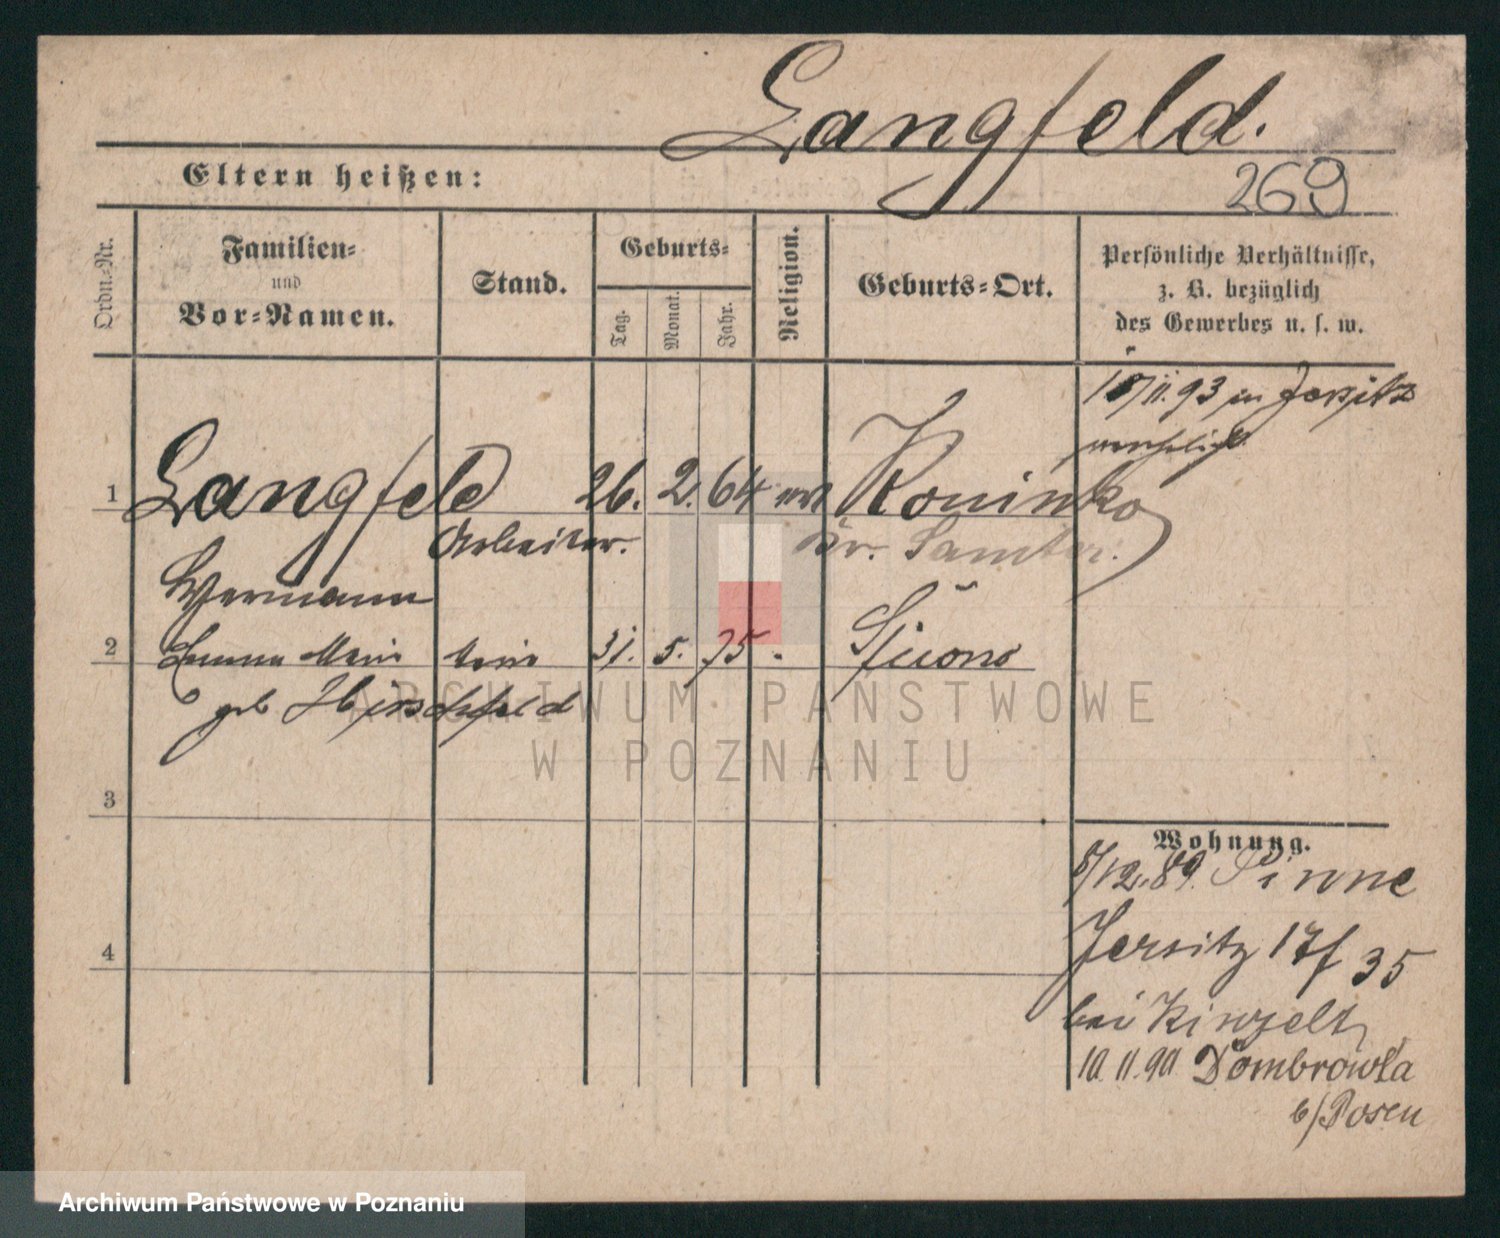 Langfeld.
Eltern heißen:
269
Ordn.-Nr.
Familien-
und
Vor-Namen.
Stand.
Geburts-
Tag.
Monat.
Jahr.
Religion.
Geburts-Ort.
Persönliche Verhältnisse,
z. B. bezüglich
des Gewerbes u. s. w.
11.93 in Jersitz
verehelicht
1 Langfeld 26. 2. 64 Koninko
Arbeiter. Kr. Samter.
Hermann
2 31. 5. 75
geb Hirschfeld
3
Wohnung.
8/12.89. Pinne
4
Jersitz 35
bei Kinzelt
10.11.90 Dombrowka
b/Posen
ARCHIWUM PAŃSTWOWE
W POZNANIU
Archiwum Państwowe w Poznaniu